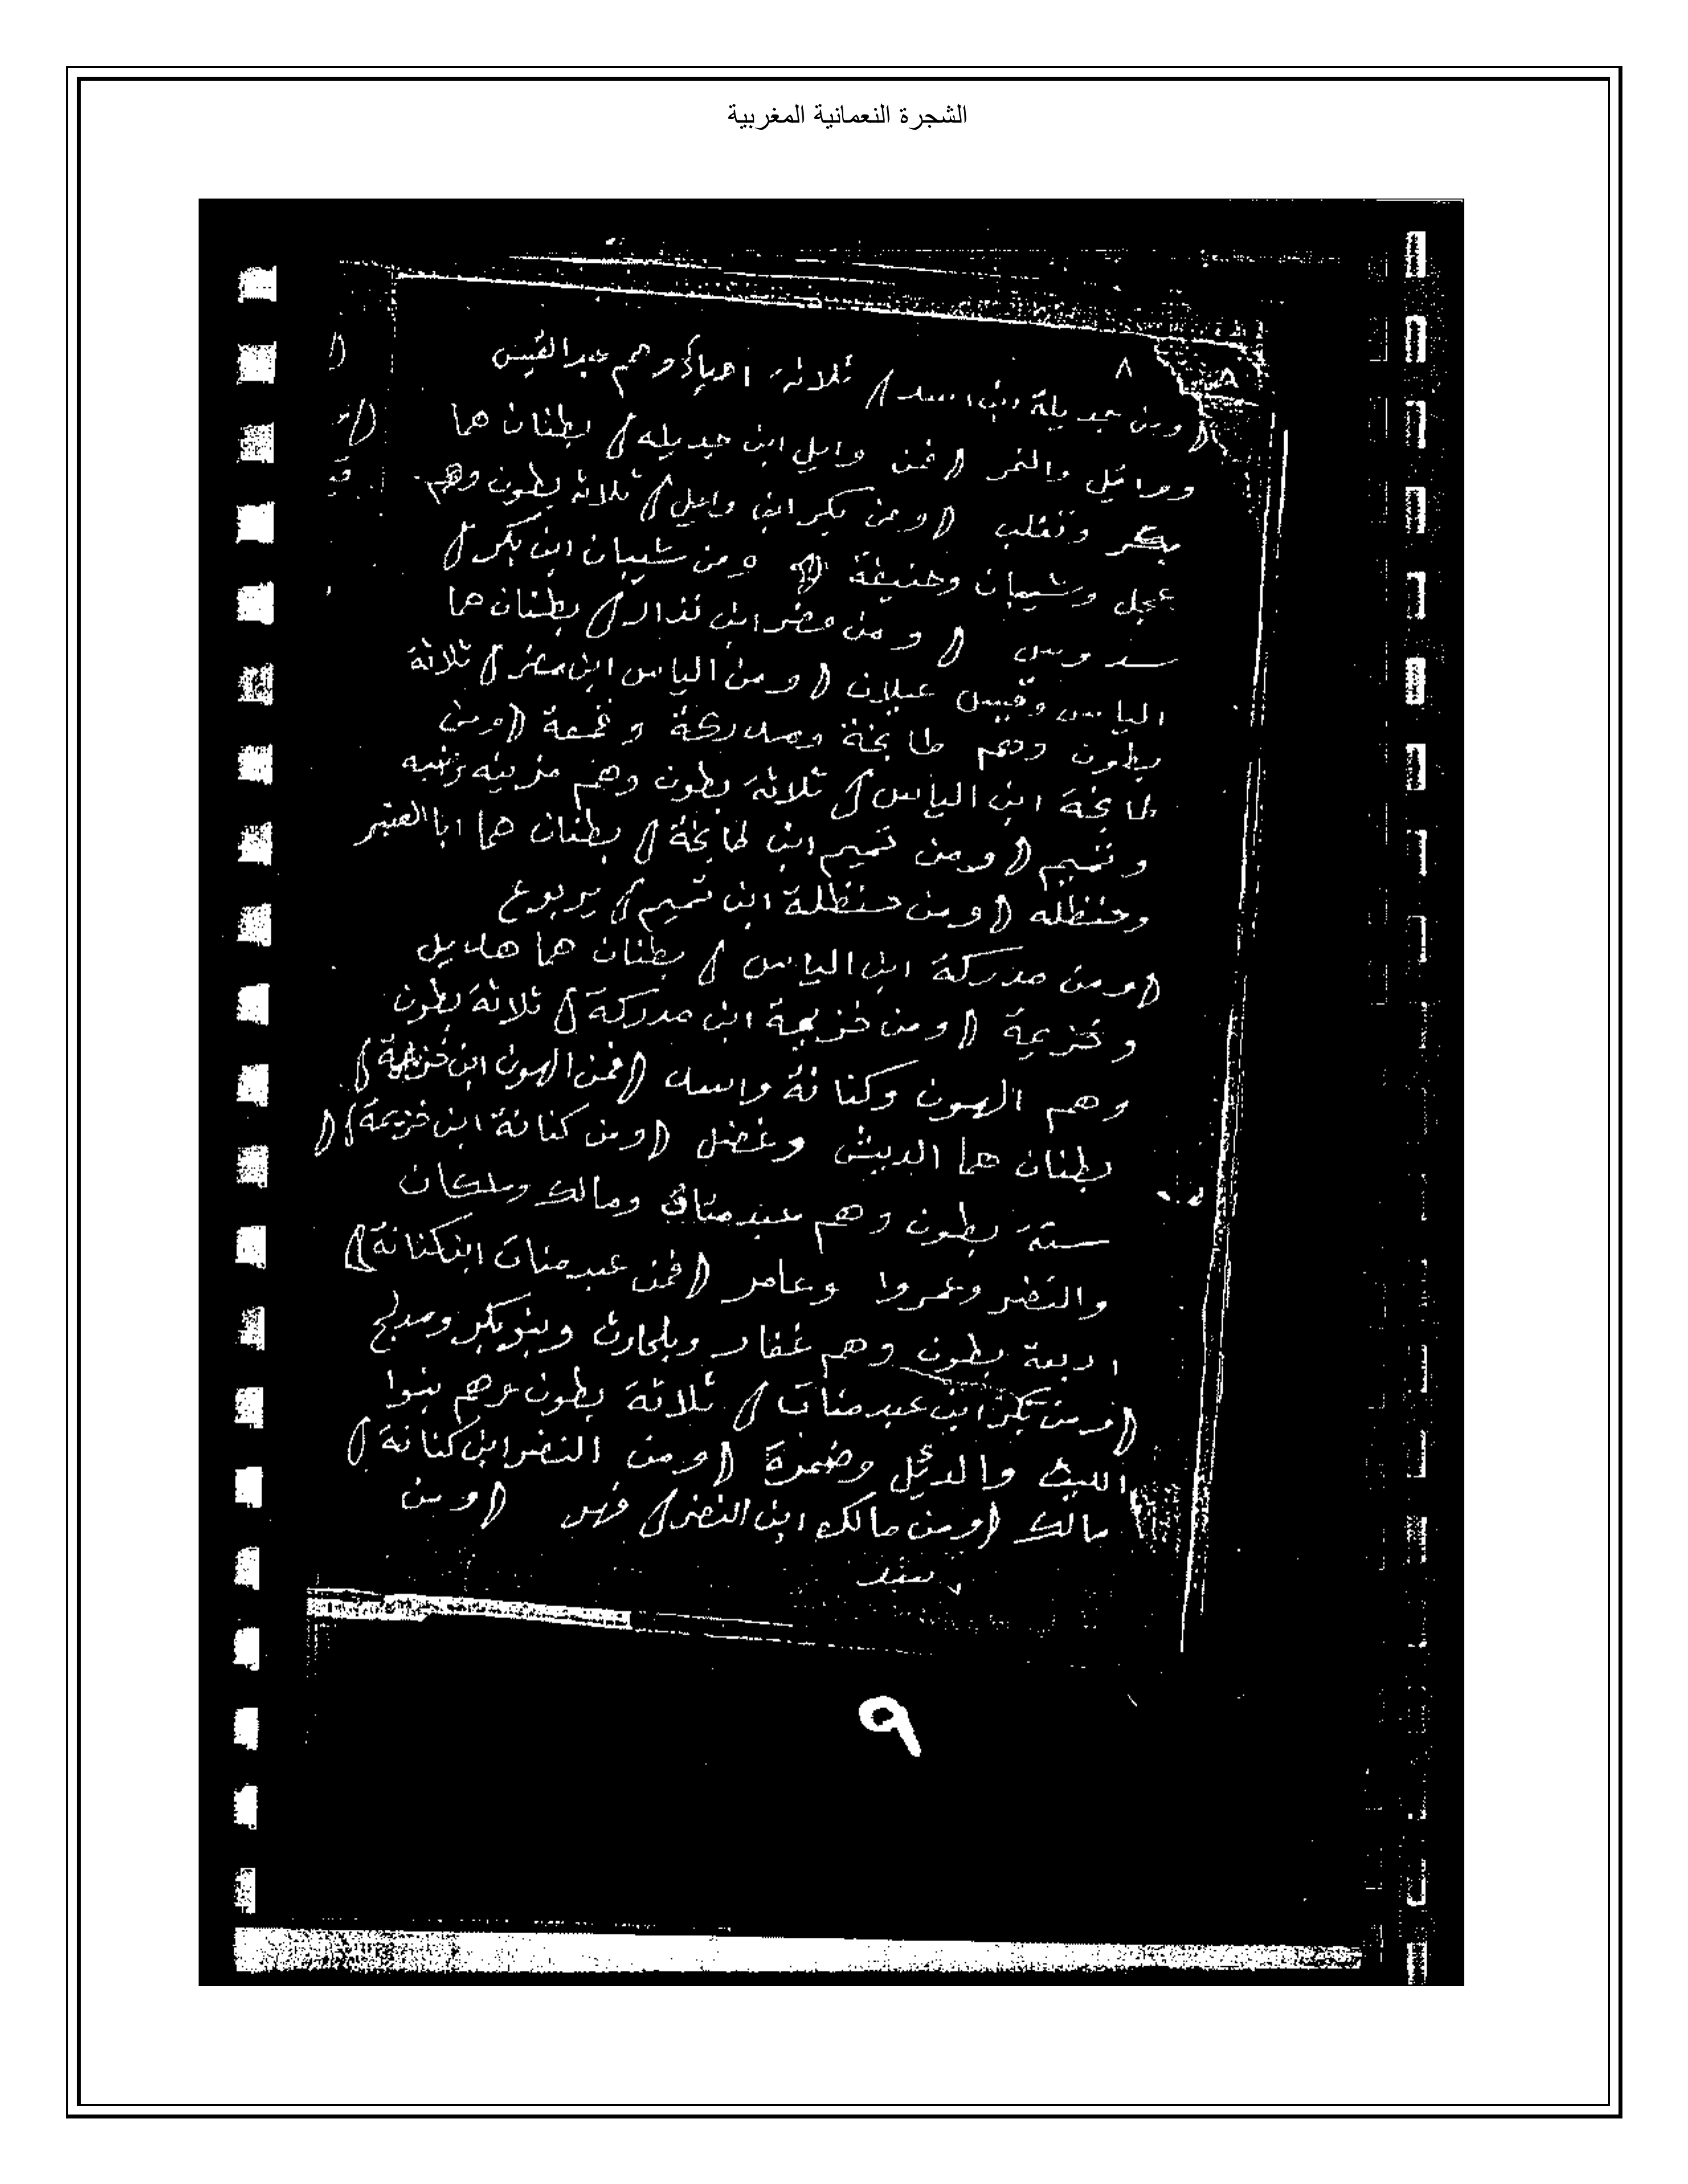 الشجرة النعمانية المغربية
٨
(ومن جديلة ابن اسد) ثلاثة احياء وهم عبد القيس
ووائل والنمر (فمن وايل ابن جديله) بطنان هما
بكر وتغلب (ومن بكر ابن وايل) ثلاثة بطون وهم
عجل وشيبان وحنيفة ومن شيبان ابن بكر)
سدوس (ومن مضر ابن نذار) بطنان هما
الياس وقيس عيلان (ومن الياس ابن مضر) ثلاثة
بطون وهم طابخة ومدركة وقمعة (ومن
طابخة ابن الياس) ثلاثة بطون وهم مزينه وضبه
وتميم (ومن تميم ابن طابخة) بطنان هما ابا العنبر
وحنظله (ومن حنظلة ابن تميم) يربوع
(ومن مدركة ابن الياس) بطنان هما هديل
وخزيمة (ومن خزيمة ابن مدركة) ثلاثة بطون
وهم الهون وكنانة واسد (فمن الهون ابن خزيمة)
بطنان هما الديش وعضل (ومن كنانة ابن خزيمة)
ستة بطون وهم عبد مناة ومالك وملكان
والنضر وعمروا وعامر (فمن عبد منات ابن كنانة)
اربعة بطون وهم غفار وبلحارث وبنو بكر ومدلج
(ومن بكر ابن عبد منات) ثلاثة بطون وهم بنوا
الليث والدئل وضمرة (ومن النضر ابن كنانة)
مالك (ومن مالك ابن النضر) فهر (ومن
٩